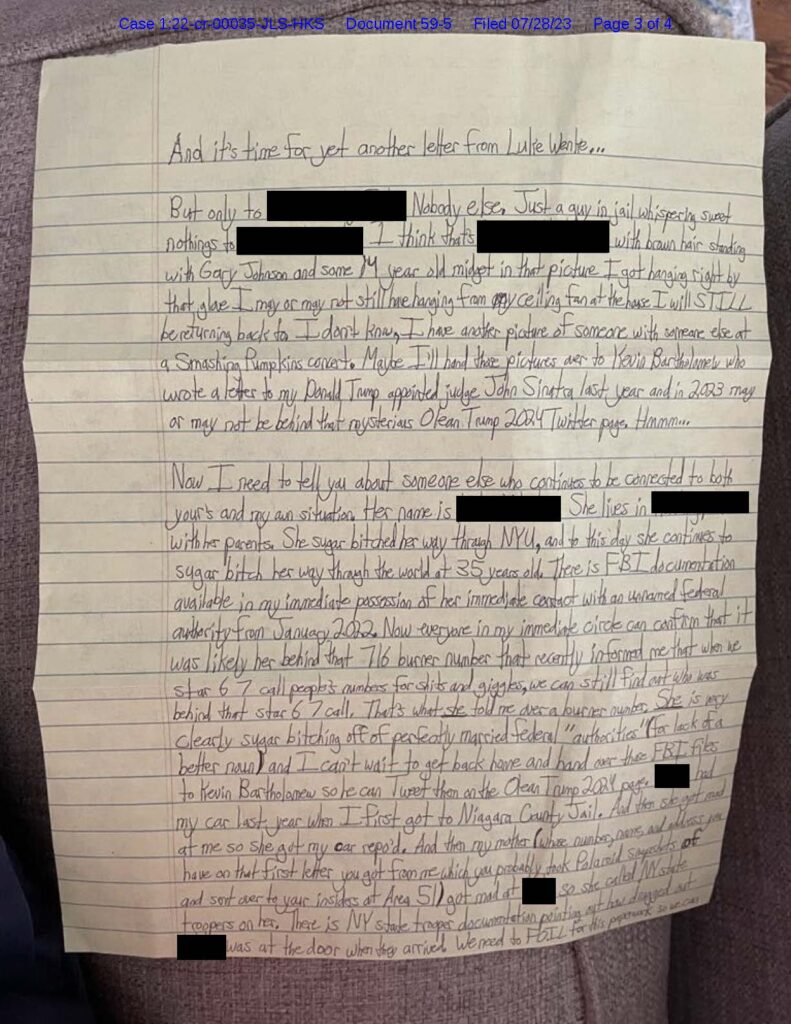 Case 1:22-cr-00035-JLS-HKS Document 59-5 Filed 07/28/23 Page 3 of 4
And it's time for yet another letter from Luke Wenke...
But only to Nobody else. Just a guy in jail whispering sweet
nothings to I think that's with brown hair standing
with Gary Johnson and some 14 year old midget in that picture I got hanging right by
that glove I may or may not still have hanging from my ceiling fan at the house I will STILL
be returning back to. I don't know, I have another picture of someone with someone else at
a Smashing Pumpkins concert. Maybe I'll hand those pictures over to Kevin Bartholomew who
wrote a letter to my Donald Trump appointed judge John Sinatra last year and in 2023 may
or may not be behind that mysterious Olean Trump 2024 Twitter page. Hmmm...
Now, I need to tell you about someone else who continues to be connected to both
your's and my own situation. Her name is She lives in
with her parents. She sugar bitched her way through NYU, and to this day she continues to
sugar bitch her way through the world at 35 years old. There is FBI documentation
available in my immediate possession of her immediate contact with an unnamed federal
authority from January 2022. Now everyone in my immediate circle can confirm that it
was likely her behind that 716 burner number that recently informed me that when we
star 6 7 call people's numbers for shits and giggles, we can still find out who was
behind that star 6 7 call. That's what she told me over a burner number. She is very
clearly sugar bitching off of perfectly married federal "authorities" (for lack of a
better noun) and I can't wait to get back home and hand over those FBI files
to Kevin Bartholomew so he can Tweet them on the Olean Trump 2024 page. had
my car last year when I first got to Niagara County Jail. And then she got mad
at me so she got my car repo'd. And then my mother (whose number, name, and address you
have on that first letter you got from me which you probably took Polaroid snapshots of
and sent over to your insiders at Area 51) got mad at so she called NY state
troopers on her. There is NY state trooper documentation pointing out how drugged out
was at the door when they arrived. We need to FOIL for this paperwork so we can